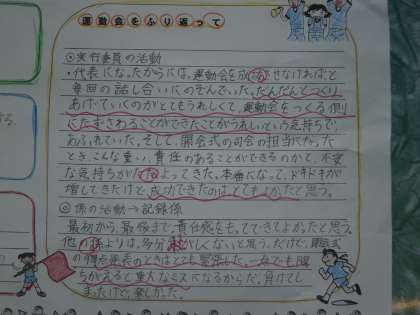 運動会をふり返って
◎実行委員の活動
・代表になったからには、運動会を成功させなければと
毎回の話し合いにのぞんでいった。だんだんとつくり
あげていくのがとてもうれしくて、運動会をつくる側
にたずさわることができたことがうれしいという気持ちで
あふれていた。そして、開会式の司会の担当になった
とき、こんな重い、責任のあることができるのかって、不安
な気持ちがでてきた。本番になって、ドキドキが
増してきたけど、成功できたのはとてもよかったと思う。
◎係の活動→記録係
最初から、最後まで、責任感をもってできてよかったと思う。
他の係よりは、多分忙しくないと思う。だけど、閉会式
の得点発表のときはとても緊張した。一つでも間
ちがえると重大なミスになるからだ。負けてし
まったけど、楽しかった。